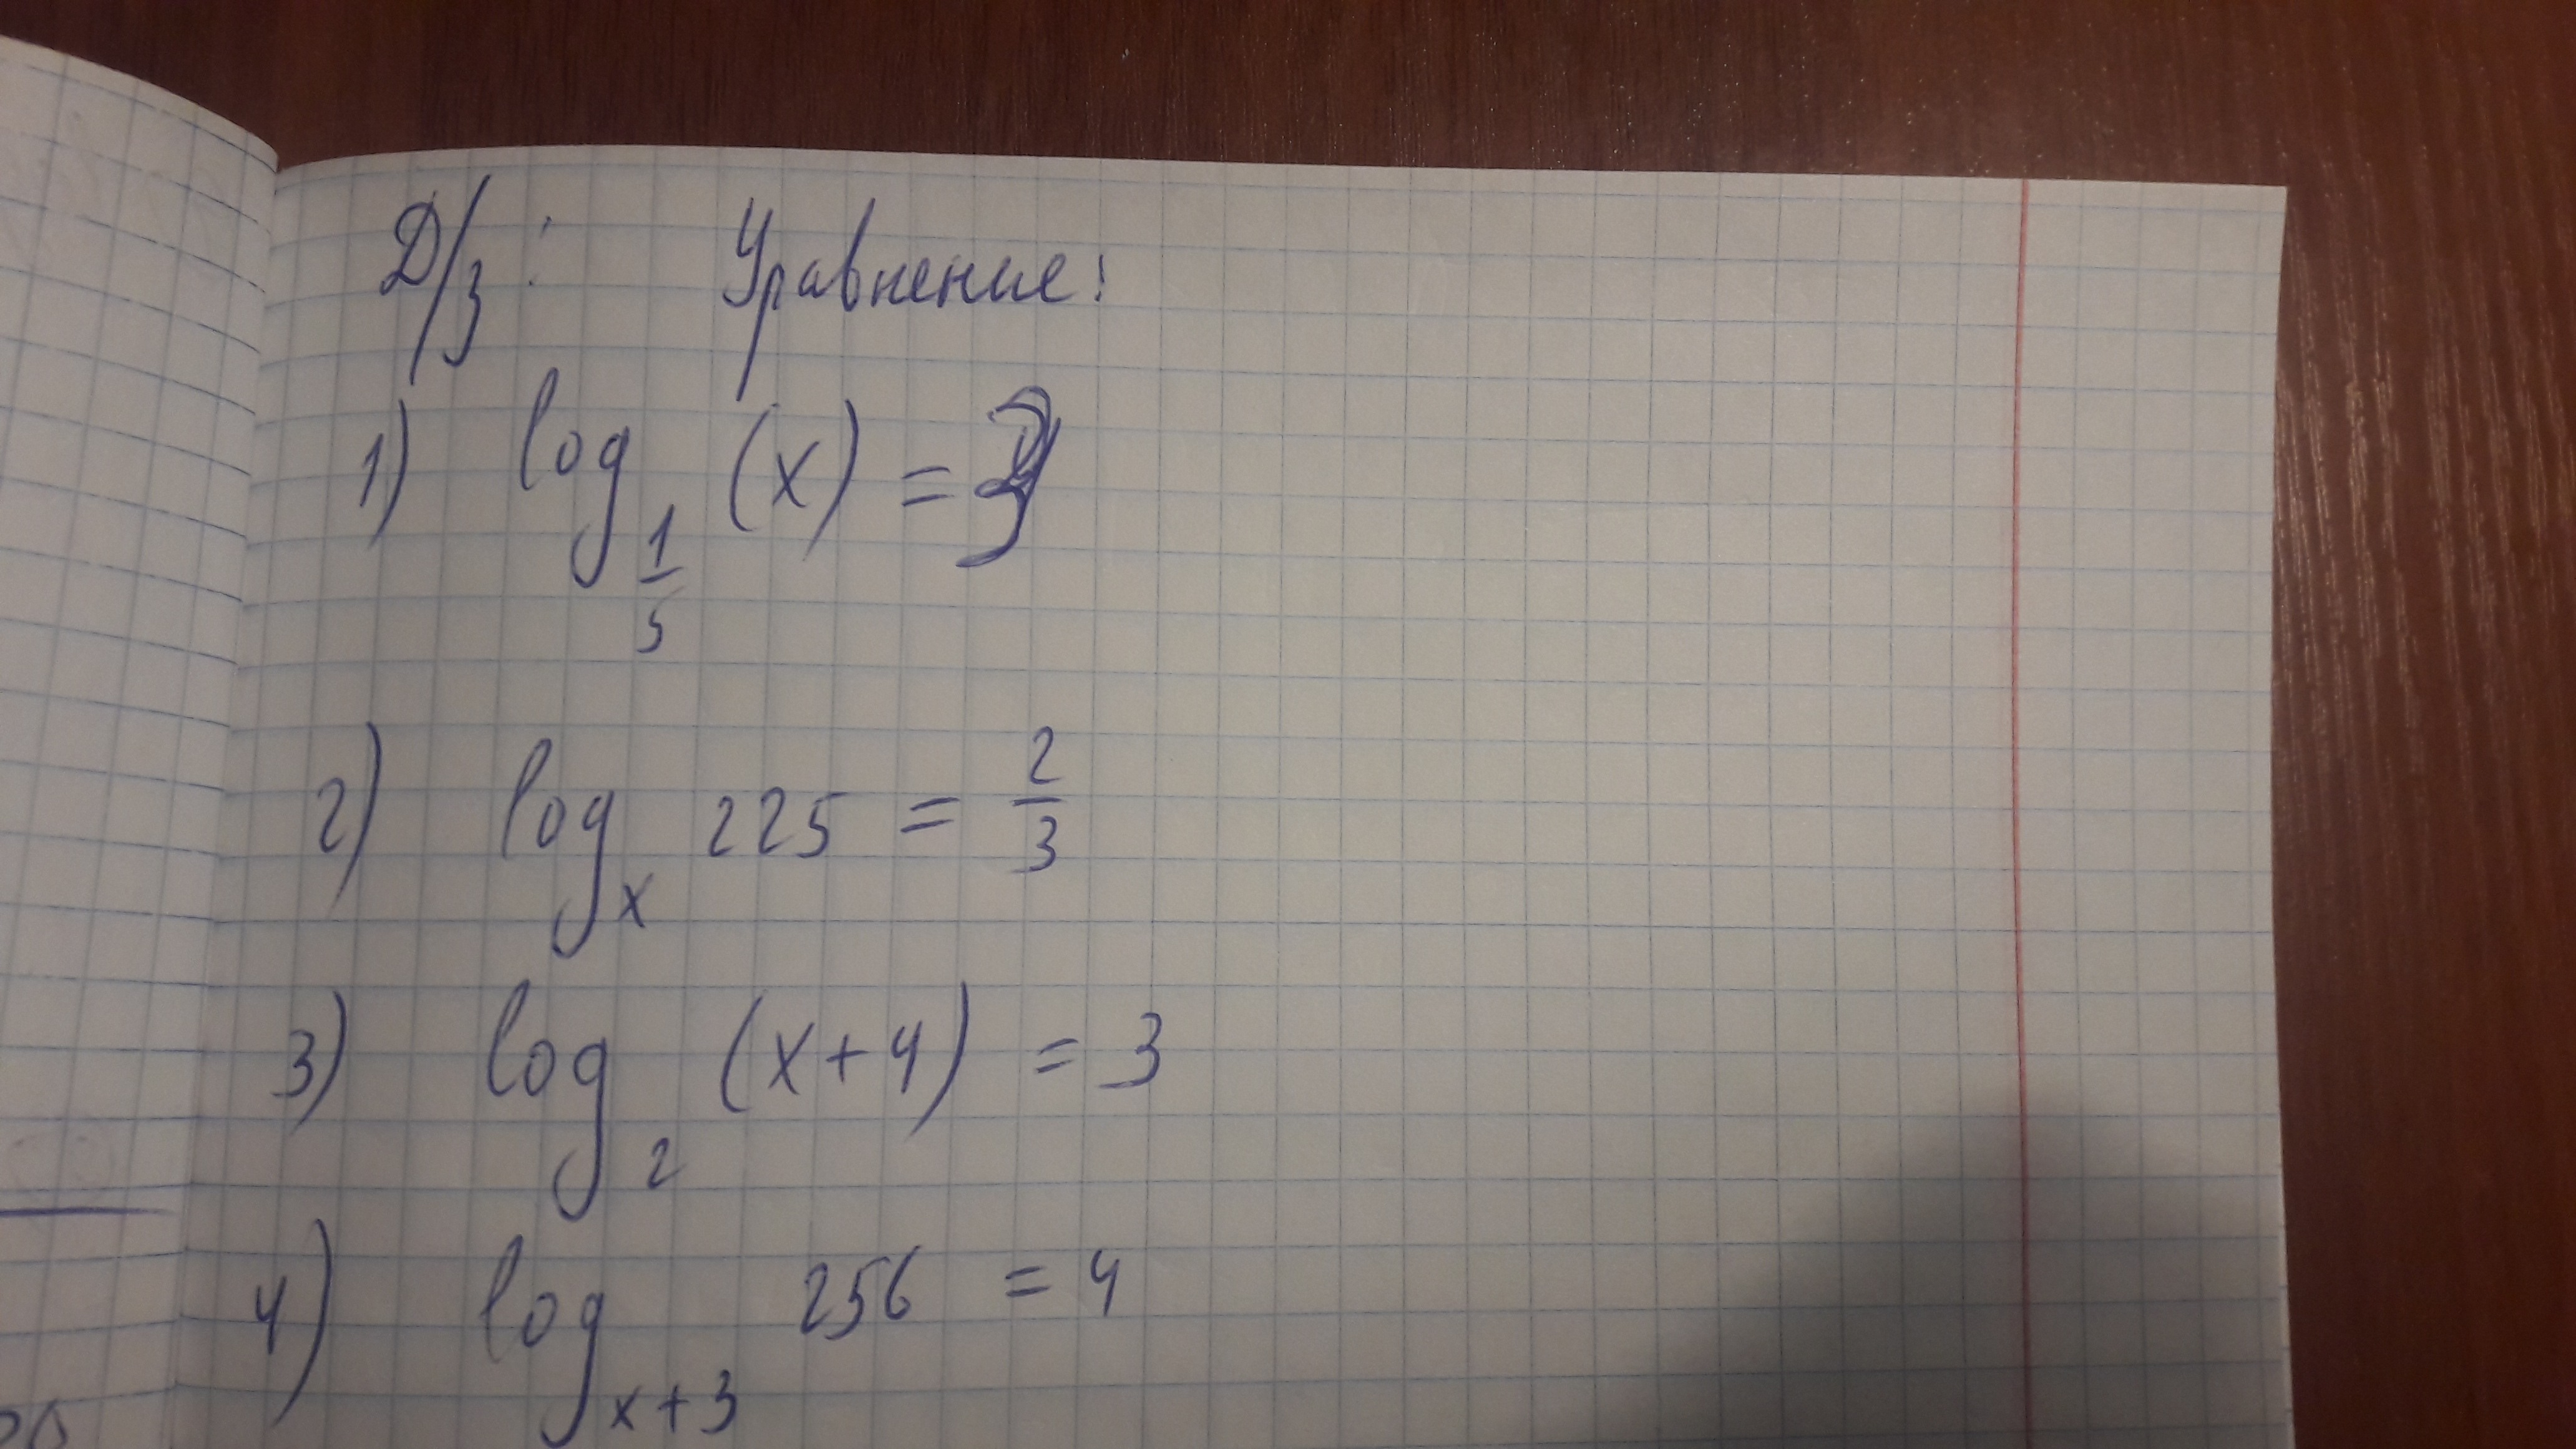 Д/з: Уравнение:
1) log_{1/5} (x) = 3
2) log_x 225 = 2/3
3) log_2 (x+4) = 3
4) log_{x+3} 256 = 4